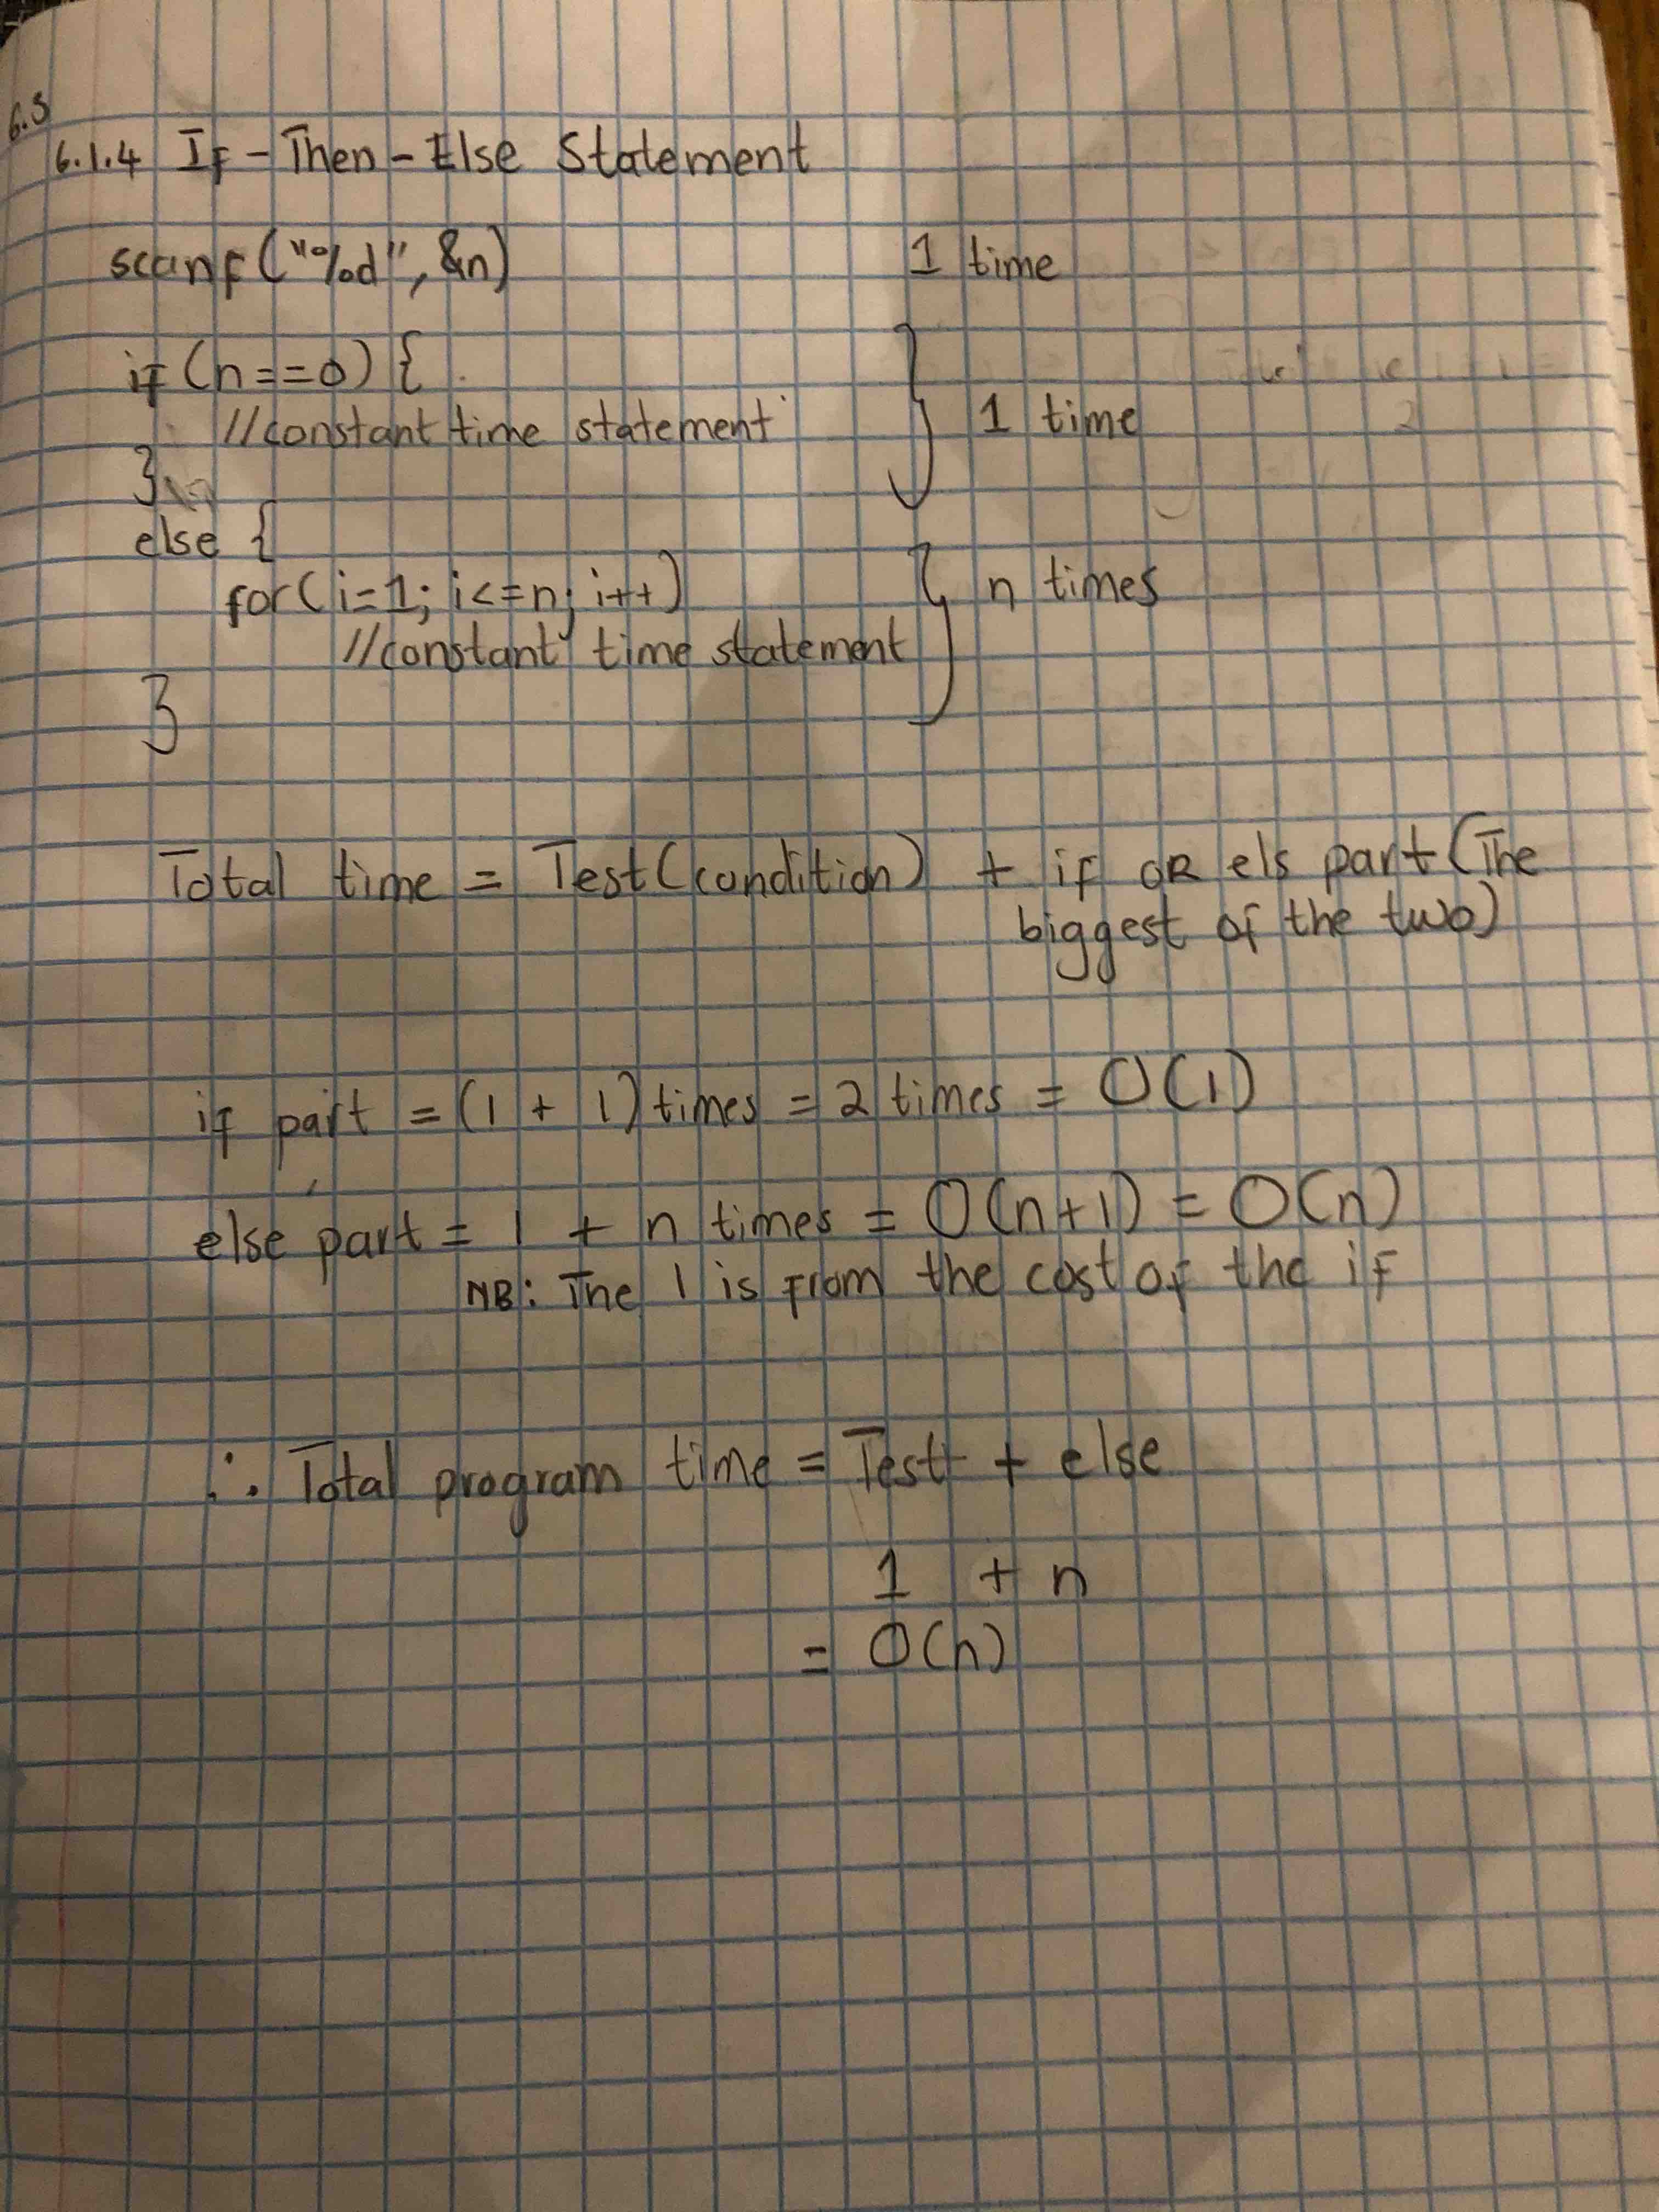 6.5
6.1.4 If-Then-Else Statement
scanf("%d", &n) 1 time
if (n==0) {
//constant time statement 1 time
}
else {
for(i=1; i<=n; i++) n times
//constant time statement
}
Total time = Test(condition) + if OR els part (The
biggest of the two)
if part = (1 + 1) times = 2 times = O(1)
else part = 1 + n times = O(n+1) = O(n)
NB: The 1 is from the cost of the if
∴ Total program time = Test + else
1 + n
= O(n)